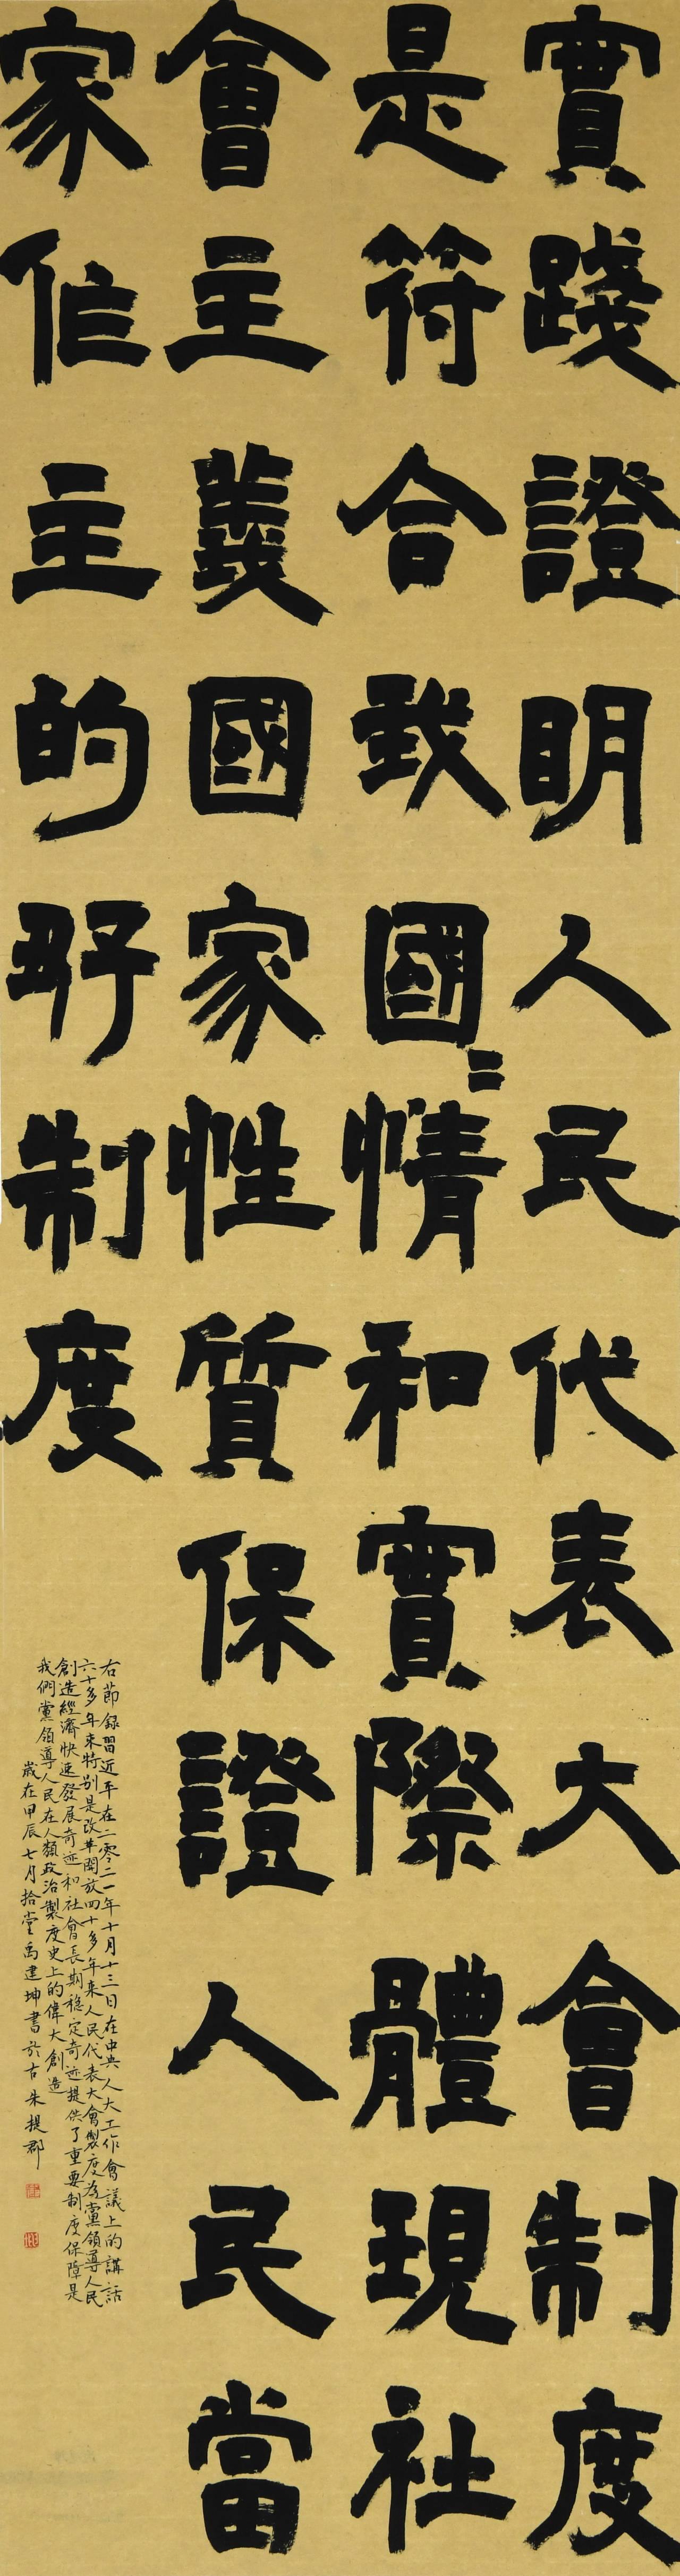 實踐證明人民代表大會制度
是符合我國〻情和實際體現社
會主義國家性質保證人民當
家作主的好制度
右節録習近平在二零二一年十月十三日在中央人大工作會議上的講話
六十多年來特别是改革開放四十多年來人民代表大會製度為黨領導人民
創造經濟快速發展奇迹和社會長期穩定奇迹提供了重要制度保障是
我們黨領導人民在人類政治製度史上的偉大創造
歲在甲辰七月拾堂禹建坤書於古朱提郡